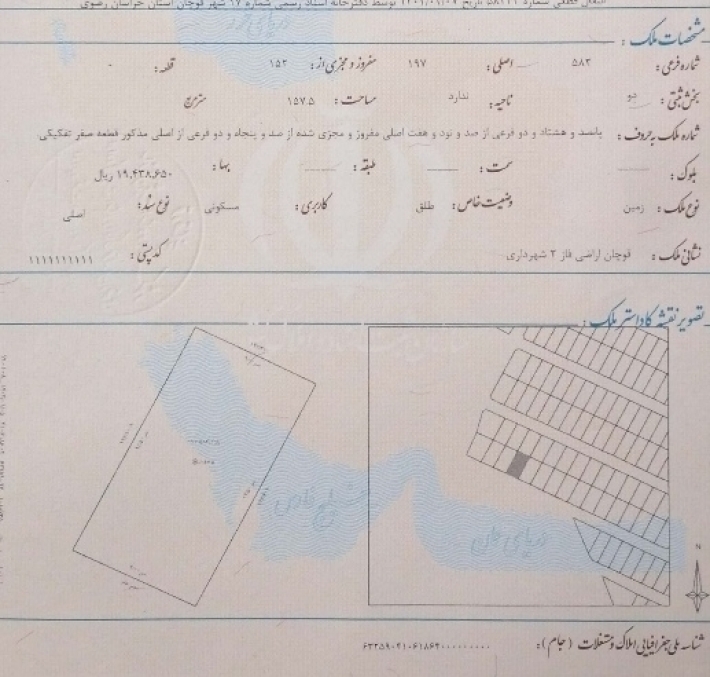 انتقال قطعی شماره ۵۸۲۲۱ تاریخ ۱۴۰۱/۰۱/۰۷ توسط دفترخانه اسناد رسمی شماره ۱۷ شهر قوچان استان خراسان رضوی
مشخصات ملک :
شماره فرعی : ۵۸۲ اصلی : ۱۹۷ مفروز و مجزی از : ۱۵۲ قطعه : ۰
بخش ثبتی : دو ناحیه : ندارد مساحت : ۱۵۷.۵ متر مربع
شماره ملک به حروف : پانصد و هشتاد و دو فرعی از صد و نود و هفت اصلی مفروز و مجزی شده از صد و پنجاه و دو فرعی از اصلی مذکور قطعه صفر تفکیکی
بلوک : سمت : طبقه : بها : ۱۹,۴۳۸,۶۵۰ ریال
نوع ملک : زمین وضعیت خاص : طلق کاربری : مسکونی نوع سند : اصلی
نشانی ملک : قوچان اراضی فاز ۲ شهرداری کد پستی : ۱۱۱۱۱۱۱۱۱۱
تصویر نقشه کاداستر ملک :
خلیج فارس
دریای عمان
N
شناسه ملی جغرافیایی املاک و مستغلات (جام) :